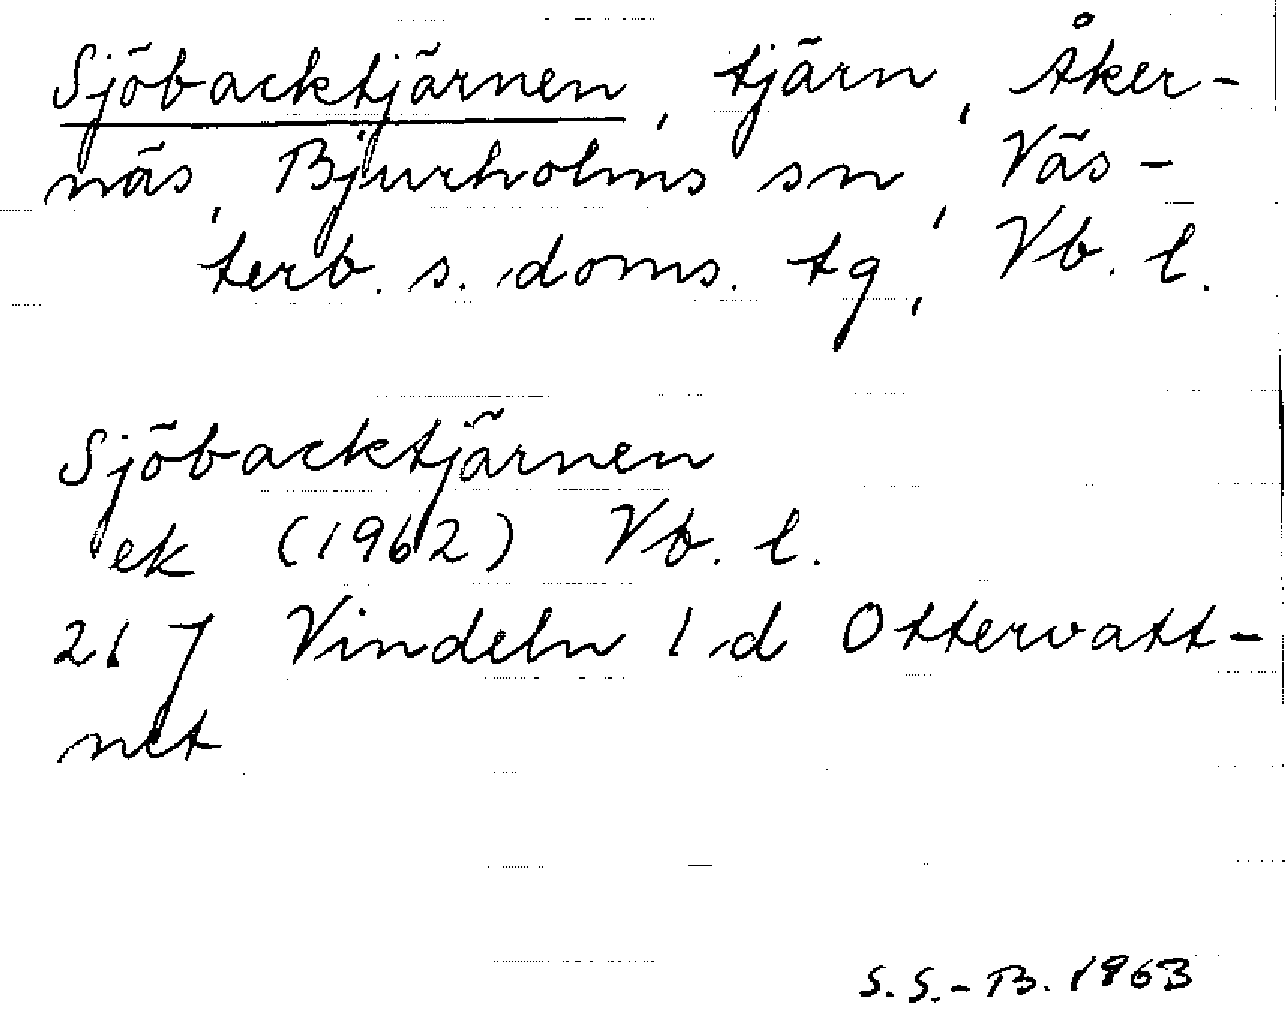 Sjöbacktjärnen, tjärn, Åker-
näs, Bjurholms sn, Väs-
terb. s. doms. tg, Vb. l.
Sjöbacktjärnen
ek (1962) Vb. l.
21 J Vindeln 1 d Ottervatt-
net
S. S.-B. 1963